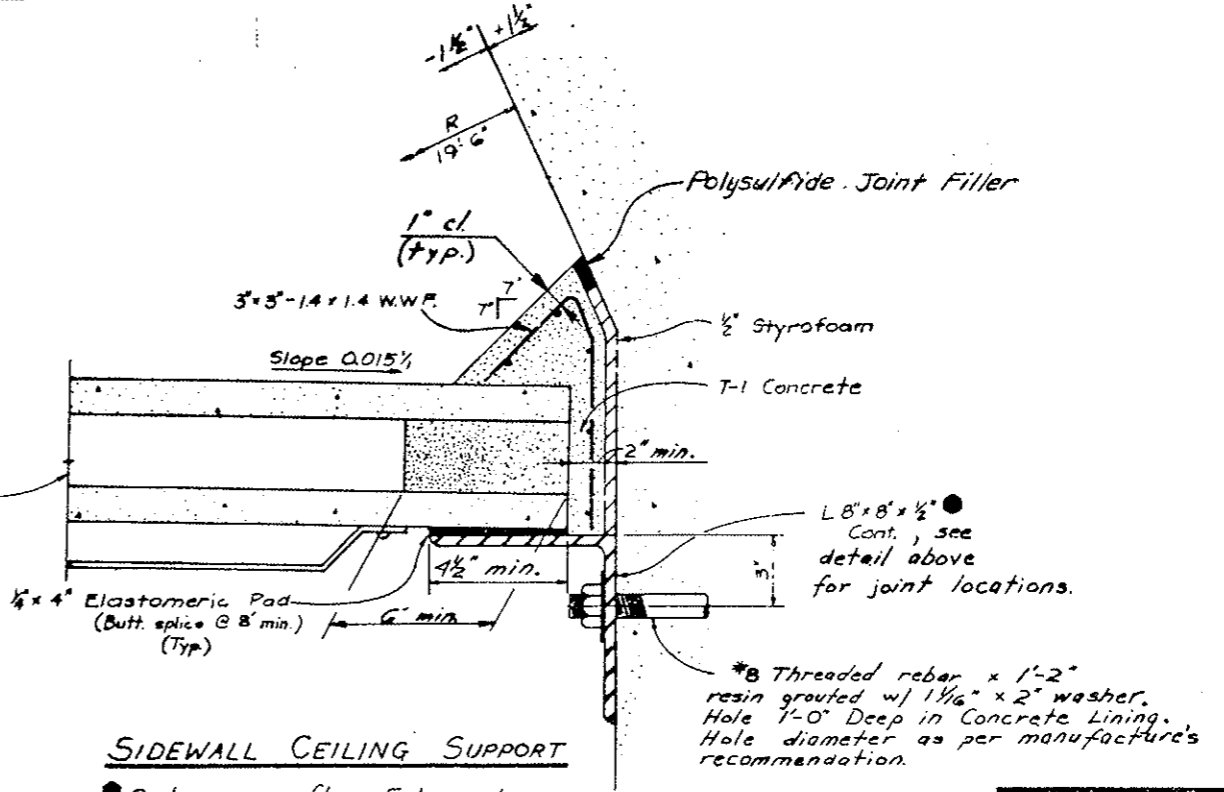 -1½" +1½"
R
19'-6"
Polysulfide Joint Filler
1" cl.
(typ.)
7"
7"
3" x 3" - 1.4 x 1.4 W.W.F.
½" Styrofoam
Slope 0.015%
T-1 Concrete
2" min.
L 8" x 8" x ½"
Cont., see
detail above
for joint locations.
3"
4½" min.
¼" x 4" Elastomeric Pad
(Butt. splice @ 8' min.)
(Typ.)
6" min.
#8 Threaded rebar x 1'-2"
resin grouted w/ 1 1/16" x 2" washer.
Hole 1'-0" Deep in Concrete Lining.
Hole diameter as per manufacture's
recommendation.
SIDEWALL CEILING SUPPORT